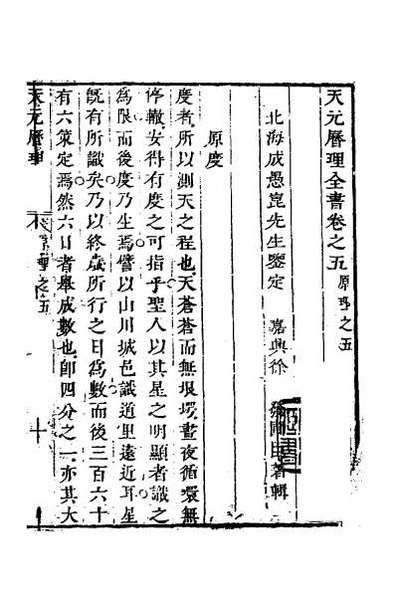 天元曆理全書卷之五 原理之五
北海成愚崑先生鑒定 嘉興徐 發圃臣著輯
原度
度者所以測天之程也天蒼蒼而無垠堮晝夜循環無
停轍安得有度之可指乎聖人以其星之明顯者識之
為限而後度乃生焉譬以山川城邑識道里遠近耳星
旣有所識矣乃以終歲所行之日為數而後三百六十
有六策定焉然六日者舉成數也卽四分之一亦其大
天元曆理 原理之五